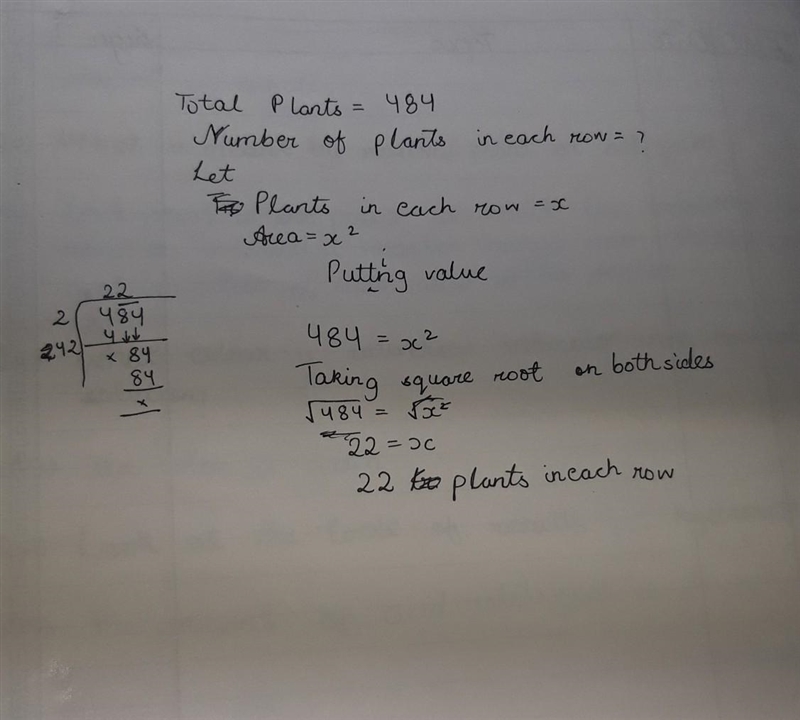 Total Plants = 484
Number of plants in each row = ?
Let
Plants in each row = x
Area = x²
Putting value
22
2 484
4
242 x 84
84
x
484 = x²
Taking square root on both sides
√484 = √x²
22 = x
22 plants in each row